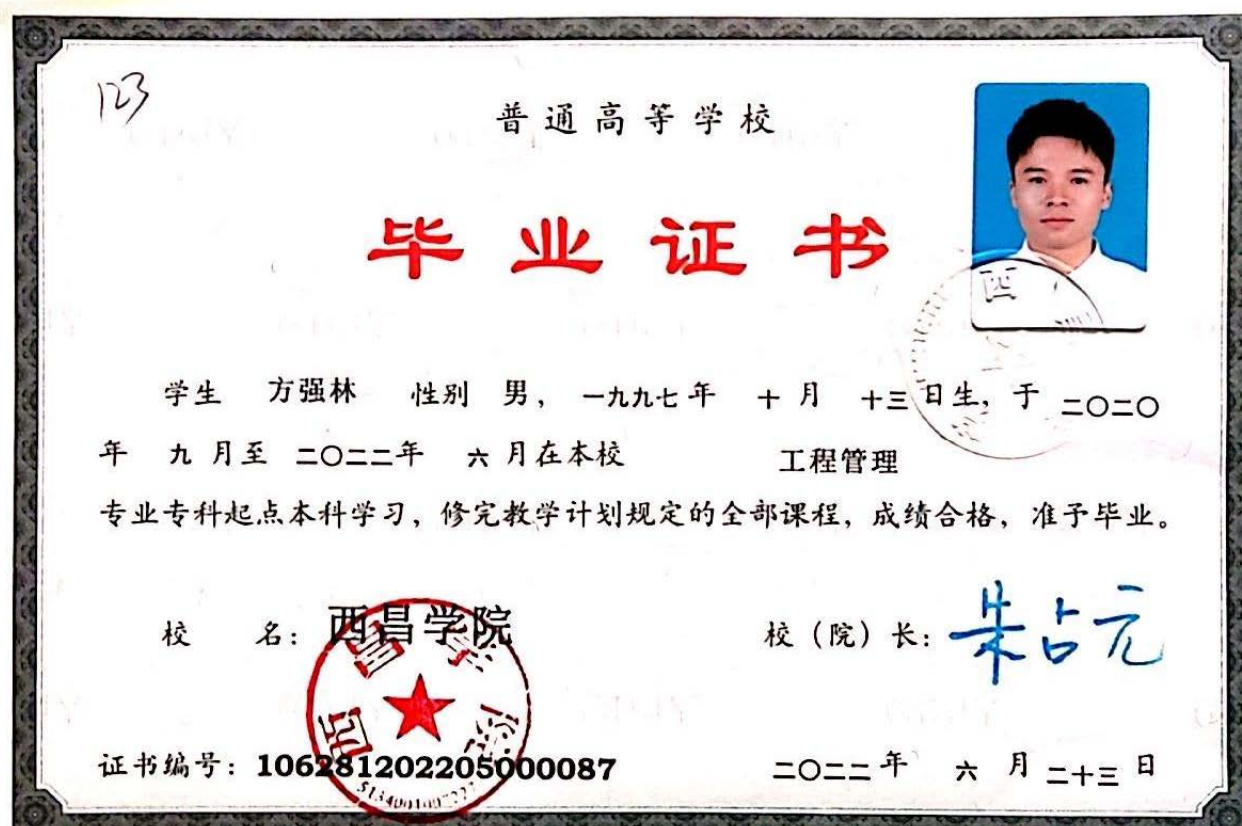 123
普通高等学校
毕业证书
学生 方强林 性别 男，一九九七年 十月 十三日生，于 二〇二〇
年 九月至 二〇二二年 六月在本校 工程管理
专业专科起点本科学习，修完教学计划规定的全部课程，成绩合格，准予毕业。
校 名：西昌学院
校（院）长：朱占元
西昌学院
证书编号：106281202205000087
二〇二二年 六月二十三日